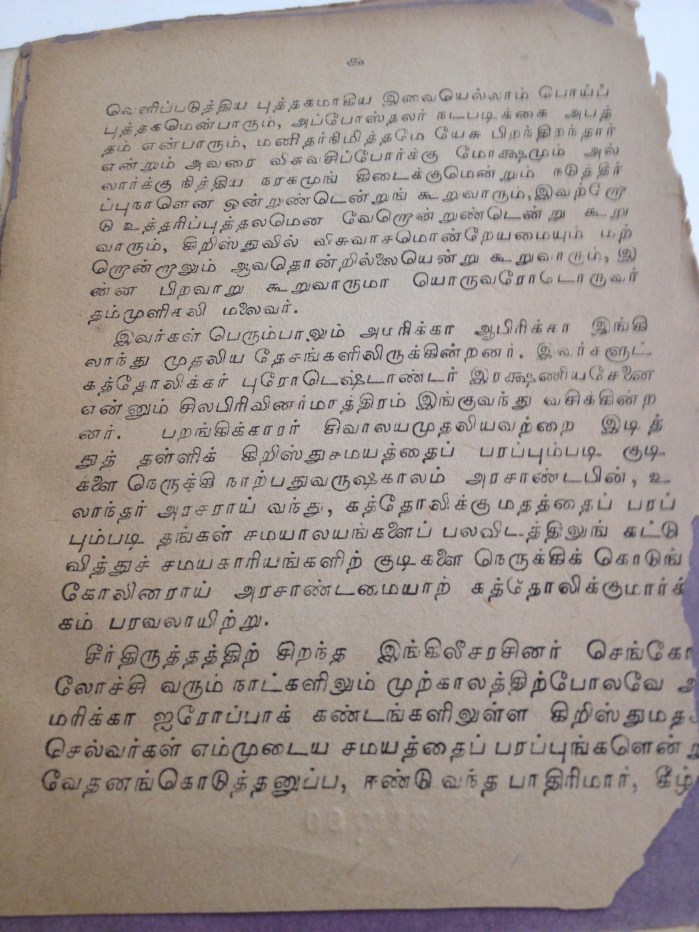 ௬
வெளிப்படுத்திய புத்தகமாகிய இவையெல்லாம் பொய்ப்
புத்தகமென்பாரும், அப்போஸ்தலர் நடபடிக்கை அபத்
தம் என்பாரும், மனிதர்நிமித்தமே யேசு பிறந்திறந்தார்
என்றும் அவரை விசுவசிப்போர்க்கு மோக்ஷமும் அல்
லார்க்கு நித்திய நரகமுங் கிடைக்குமென்றும் நடுத்தீர்
ப்புநாளென ஒன்றுண்டென்றுங் கூறுவாரும், இவற்றோ
டு உத்தரிப்புத்தலமென வேறொன்றுண்டென்று கூறு
வாரும், கிறிஸ்துவில் விசுவாசமொன்றேயமையும் மற்
றொன்றாலும் ஆவதொன்றில்லையென்று கூறுவாரும், இ
ன்ன பிறவாறு கூறுவாருமா யொருவரோடொருவர்
தம்முளிகலி மலைவர்.
இவர்கள் பெரும்பாலும் அமரிக்கா ஆபிரிக்கா இங்கி
லாந்து முதலிய தேசங்களிலிருக்கின்றனர். இவர்களுட்
கத்தோலிக்கர் புரோடெஷ்டாண்டர் இரக்ஷணியசேனை
என்னும் சிலபிரிவினர்மாத்திரம் இங்குவந்து வசிக்கின்ற
னர். பறங்கிக்காரர் சிவாலயமுதலியவற்றை இடித்
துத் தள்ளிக் கிறிஸ்துசமயத்தைப் பரப்பும்படி குடி
களை நெருக்கி நாற்பதுவருஷகாலம் அரசாண்டபின், உ
லாந்தர் அரசராய் வந்து, கத்தோலிக்குமதத்தைப் பரப்
பும்படி தங்கள் சமயாலயங்களைப் பலவிடத்திலுங் கட்டு
வித்துச் சமயகாரியங்களிற் குடிகளை நெருக்கிக் கொடுங்
கோலினராய் அரசாண்டமையாற் கத்தோலிக்குமார்க்
கம் பரவலாயிற்று.
சீர்திருத்தத்திற் சிறந்த இங்கிலீசரசினர் செங்கோ
லோச்சி வரும் நாட்களிலும் முற்காலத்திற்போலவே அ
மரிக்கா ஐரோப்பாக் கண்டங்களிலுள்ள கிறிஸ்துமதச்
செல்வர்கள் எம்முடைய சமயத்தைப் பரப்புங்களென்று
வேதனங்கொடுத்தனுப்ப, ஈண்டு வந்த பாதிரிமார், கீழ்